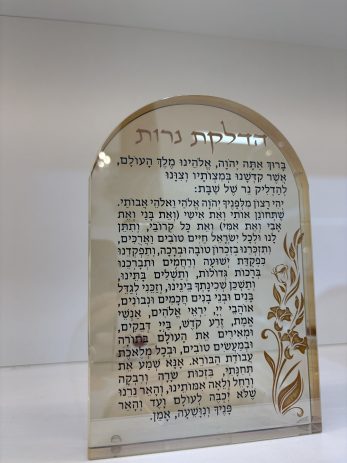 הדלקת נרות
בָּרוּךְ אַתָּה יְהֹוָה, אֱלֹהֵינוּ מֶלֶךְ הָעוֹלָם,
אֲשֶׁר קִדְּשָׁנוּ בְּמִצְוֹתָיו וְצִוָּנוּ
לְהַדְלִיק נֵר שֶׁל שַׁבָּת:
יְהִי רָצוֹן מִלְּפָנֶיךָ יְהֹוָה אֱלֹהַי וֵאלֹהֵי אֲבוֹתַי,
שֶׁתְּחוֹנֵן אוֹתִי וְאֶת אִישִׁי (וְאֶת בָּנַי וְאֶת
אָבִי וְאֶת אִמִּי) וְאֶת כָּל קְרוֹבַי, וְתִתֵּן
לָנוּ וּלְכָל יִשְׂרָאֵל חַיִּים טוֹבִים וַאֲרֻכִּים,
וְתִזְכְּרֵנוּ בְּזִכְרוֹן טוֹבָה וּבְרָכָה, וְתִפְקְדֵנוּ
בִּפְקֻדַּת יְשׁוּעָה וְרַחֲמִים וּתְבָרְכֵנוּ
בְּרָכוֹת גְּדוֹלוֹת, וְתַשְׁלִים בָּתֵּינוּ,
וְתַשְׁכֵּן שְׁכִינָתְךָ בֵּינֵינוּ, וְזַכֵּנִי לְגַדֵּל
בָּנִים וּבְנֵי בָנִים חֲכָמִים וּנְבוֹנִים,
אוֹהֲבֵי יְיָ, יִרְאֵי אֱלֹהִים, אַנְשֵׁי
אֱמֶת, זֶרַע קֹדֶשׁ, בַּייָ דְּבֵקִים,
וּמְאִירִים אֶת הָעוֹלָם בַּתּוֹרָה
וּבְמַעֲשִׂים טוֹבִים, וּבְכָל מְלֶאכֶת
עֲבוֹדַת הַבּוֹרֵא. אָנָּא שְׁמַע אֶת
תְּחִנָּתִי, בִּזְכוּת שָׂרָה וְרִבְקָה
וְרָחֵל וְלֵאָה אִמּוֹתֵינוּ, וְהָאֵר נֵרֵנוּ
שֶׁלֹּא יִכְבֶּה לְעוֹלָם וָעֶד וְהָאֵר
פָּנֶיךָ וְנִוָּשֵׁעָה, אָמֵן.